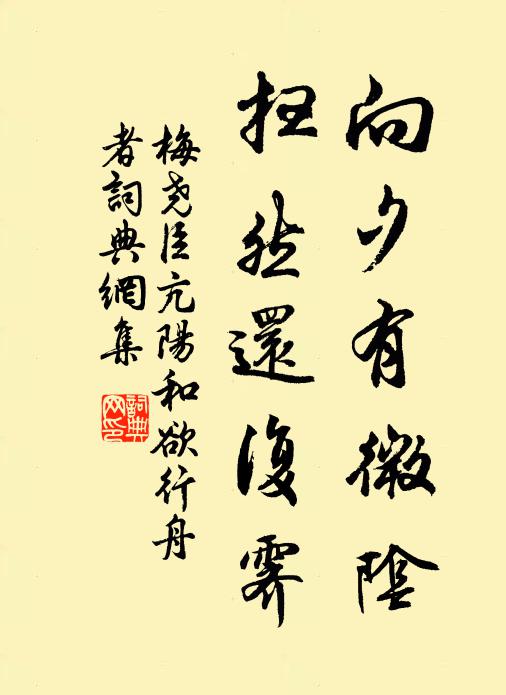 向夕有微陰
扫然還復霽
梅尧臣亢陽和欲行舟
者詞典網集
詞典網印